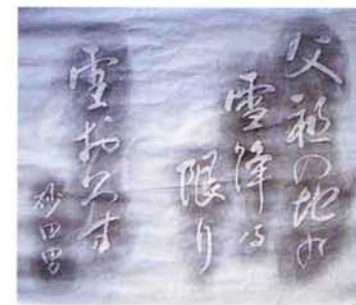 父祖の地に
雪降る
限り
雪おろす
砂田男